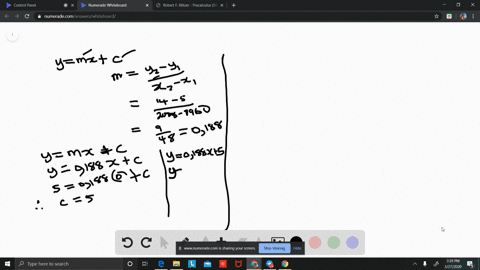 Control Panel
Numerade Whiteboard
numerade.com/answers/whiteboard/
y = mx + c
m = y₂ - y₁ / x₂ - x₁
= 14 - 5 /
= 9/48 = 0,188
y = mx + c
y = 0,188x + c
5 = 0,188(0) + c
∴ c = 5
y = 0,188x+5
y
www.numerade.com is sharing your screen.
Stop sharing
Hide
Type here to search
3:35 PM